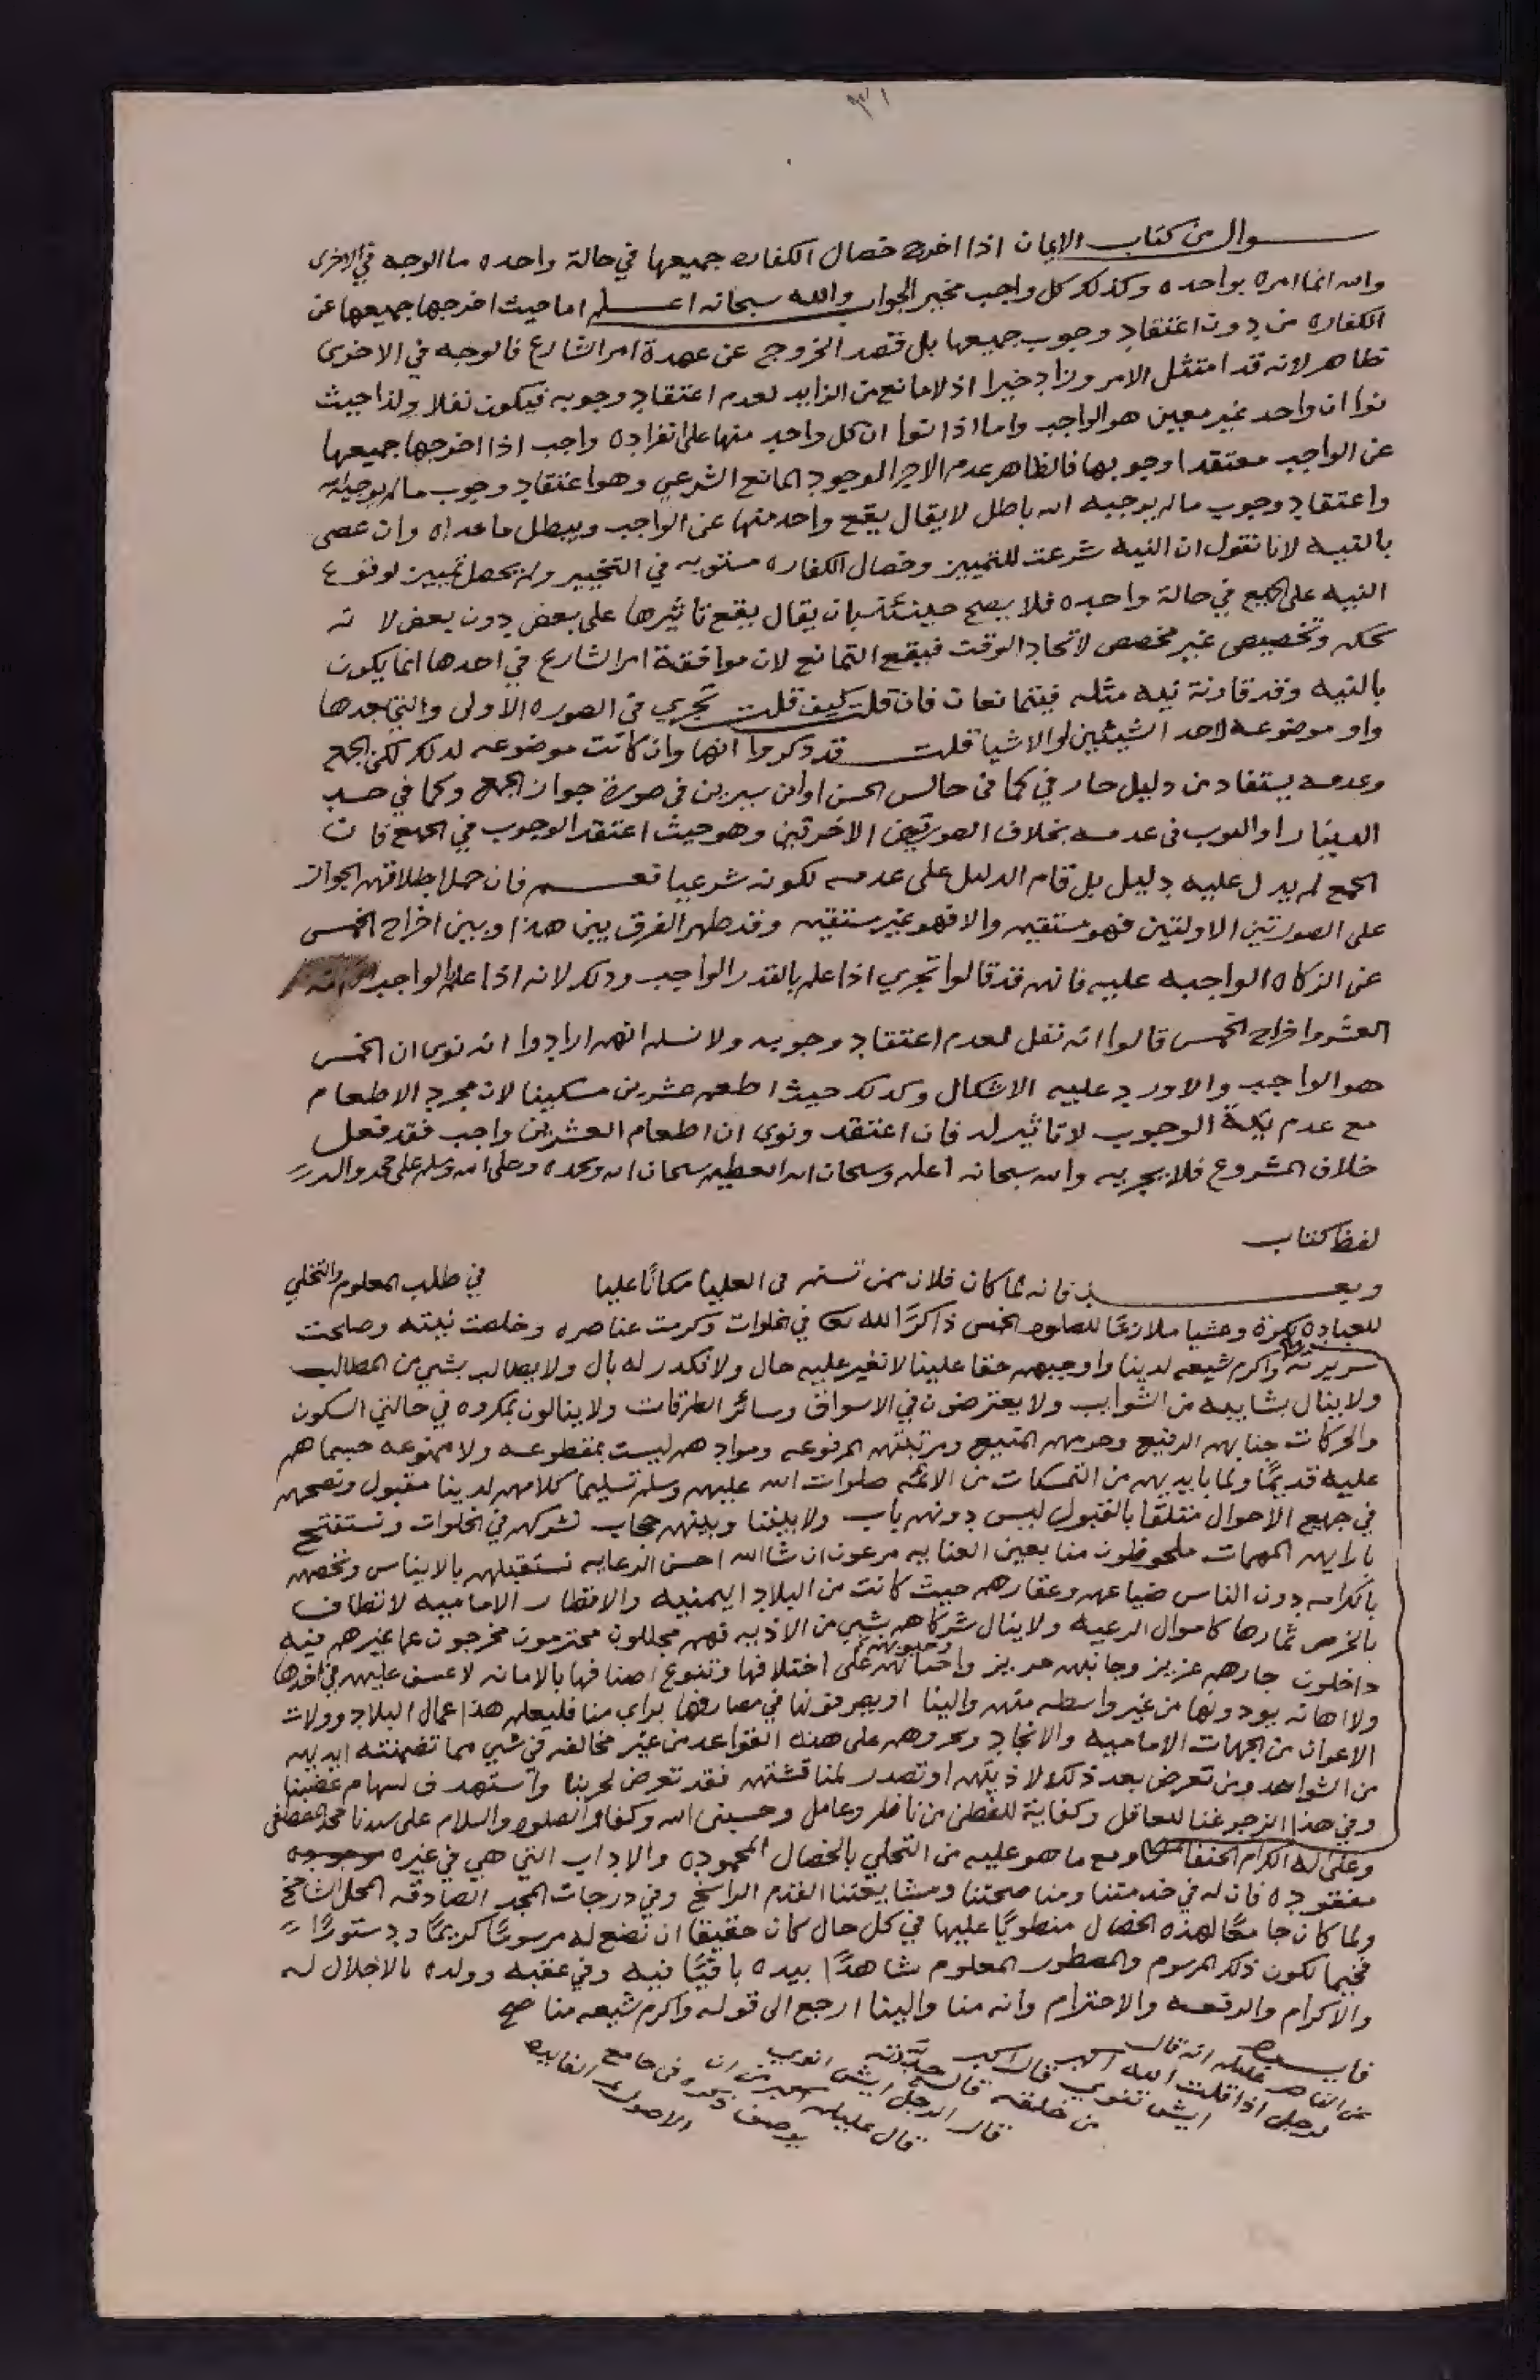 ٣١
سوال من كتاب الايمان اذا اخرج خصال الكفاره جميعها في حالة واحده ما الوجه في الاخرى
والله انما امره بواحده وكذلك كل واجب مخير الجواب والله سبحانه اعلم اما حيث اخرجها جميعها عن
الكفاره من دون اعتقاد وجوب جميعها بل قصد الخروج عن عهدة امر الشارع فالوجه في الاخرى
ظاهر لانه قد امتثل الامر وزاد خيرا اذ لا مانع من الزايد لعدم اعتقاد وجوبه فيكون نفلا وكذا حيث
نوا ان واحد غير معين هو الواجب واما اذا نوا ان كل واحد منها على انفراده واجب اذا اخرجها جميعها
عن الواجب معتقدا وجوبها فالظاهر عدم الاجزا لوجود المانع الشرعي وهو اعتقاد وجوب ما لم يوجبه الله
واعتقاد وجوب ما لم يوجبه الله باطل لا يقال يقع واحد منها عن الواجب ويبطل ما عداه وان عصى
بالنيه لانا نقول ان النيه شرعت للتمييز وخصال الكفاره مستويه في التخيير ولم يحصل تمييز لوقوع
النيه على الجميع في حالة واحده فلا يصح حينئذ بان يقال يقع تاثيرها على بعض دون بعض لانه
تحكم وتخصيص غير مخصص لاتحاد الوقت فيقع التمانع لان موافقة امر الشارع في احدها انما يكون
بالنيه وقد قارنة نيه مثله فيتمانعان فان قلت كيف قلت تجزي في الصوره الاولى والتي بعدها
واو موضوعه لاحد الشيئين او الاشيا قلت قد ذكروا انها وان كانت موضوعه لذلك لكن الجمع
وعدمه يستفاد من دليل خارجي كما في جالس الحسن او ابن سيرين في صورة جواز الجمع وكما في خذ
الدينار او الثوب في عدمه بخلاف الصورتين الاخرتين وهو حيث اعتقد الوجوب في الجميع فان
الجمع لم يدل عليه دليل بل قام الدليل على عدمه لكونه شرعيا نعم فان حمل اطلاقهم الجواز
على الصورتين الاولتين فهو مستقيم والا فهو غير مستقيم وقد ظهر الفرق بين هذا وبين اخراج الخمس
عن الزكاه الواجبه عليه فانهم قد قالوا تجزي اذا علم بالقدر الواجب وذلك لانه اذا علم الواجب
العشر واخراج الخمس قالوا انه نفل لعدم اعتقاد وجوبه ولا نسلم انهم ارادوا انه نوى ان الخمس
هو الواجب والا ورد عليه الاشكال وكذلك حيث اطعم عشرين مسكينا لان مجرد الاطعام
مع عدم نية الوجوب لا تاثير له فان اعتقد ونوى ان اطعام العشرين واجب فقد فعل
خلاف المشروع فلا يجزيه والله سبحانه اعلم وسبحان الله العظيم سبحان الله وبحمده وصلى الله وسلم على محمد واله
لفظ كتاب
وبعد فانه لما كان فلان ممن تسنم من العليا مكانًا عليا في طلب العلوم والتخلي
للعباده بكرة وعشيا ملازمًا للصلوات الخمس ذاكرًا لله تعالى في الخلوات وكرمت عناصره وخلصت نيته وصلحت
سريرته واكرم شيعه لدينا واوجبهم حقا علينا لا تغير عليه حال ولا تكدر له بال ولا يطالب بشي من المطالب
ولا ينال بشايبه من الشوايب ولا يعترضون في الاسواق وسائر الطرقات ولا ينالون بمكروه في حالتي السكون
والحركات جنابهم الرفيع وحرمهم المنيع ومرتبتهم المرفوعه وموادهم ليست بمقطوعه ولا ممنوعه حسبما هم
عليه قديمًا ولما بايديهم من التمسكات من الائمه صلوات الله عليهم وسلم تسليما كلامهم لدينا مقبول ونصحهم
في جميع الاحوال متلقا بالقبول ليس دونهم باب ولا بيننا وبينهم حجاب نشركهم في الخلوات ونستفتح
بارايهم المهمات ملحوظون منا بعين العنايه مرعون ان شا الله احسن الرعايه نستقبلهم بالايناس ونخصهم
بالكرامه دون الناس ضياعهم وعقارهم حيث كانت من البلاد اليمنيه والاقطار الاماميه لا تطاف
بالخرص ثمارها كاموال الرعيه ولا ينال شركاهم بشي من الاذيه فهم مجللون محترمون مخرجون عما غيرهم فيه
داخلون جارهم عزيز وجانبهم حريز واجباتهم وحبوبهم على اختلافها وتنوع اصنافها بالامانه لا عسف عليهم في اخذها
ولا اهانه يودونها من غير واسطه منهم والينا او يصرفونها في مصارفها براي منا فليعلم هذا عمال البلاد وولات
الاعوان من الجهات الاماميه والانجاد ويجروهم على هذه القواعد من غير مخالفه في شي مما تضمنته ايديهم
من الشواهد ومن تعرض بعد ذلك لاذيتهم او تصدر لمناقشتهم فقد تعرض لحربنا واستهدف لسهام غضبنا
وفي هذا الزجر غنا للعاقل وكفاية للفطن من ناظر وعامل وحسبي الله وكفا والصلوه والسلام على سيدنا محمد المصطفى
وعلى اله الكرام الحنفا ومع ما هو عليه من التحلي بالخصال المحموده والاداب التي هي في غيره
مفقوده فان له في خدمتنا ومناصحتنا ومشايعتنا القدم الراسخ وفي درجات المجد الصادقه المحل الشامخ
ولما كان جامعًا لهذه الخصال منطويًا عليها في كل حال كان حقيقا ان نضع له مرسومًا كريمًا ودستورًا
فخيما لكون ذلك المرسوم والمسطور المعلوم شاهدًا بيده باقيًا فيه وفي عقبه وولده بالاجلال له
والاكرام والرفعه والاحترام وانه منا والينا ارجع الى قوله واكرم شيعه منا صح
فايده
عن الناصر عليلم انه قال
لرجل اذا قلت الله اكبر
ايش تنوي قال اكبر
من خلقه قال حدّدته
قال الرجل ايش انوي
قال عليلم اكبر من ان
يوصف ذكره في جامع
الاصول